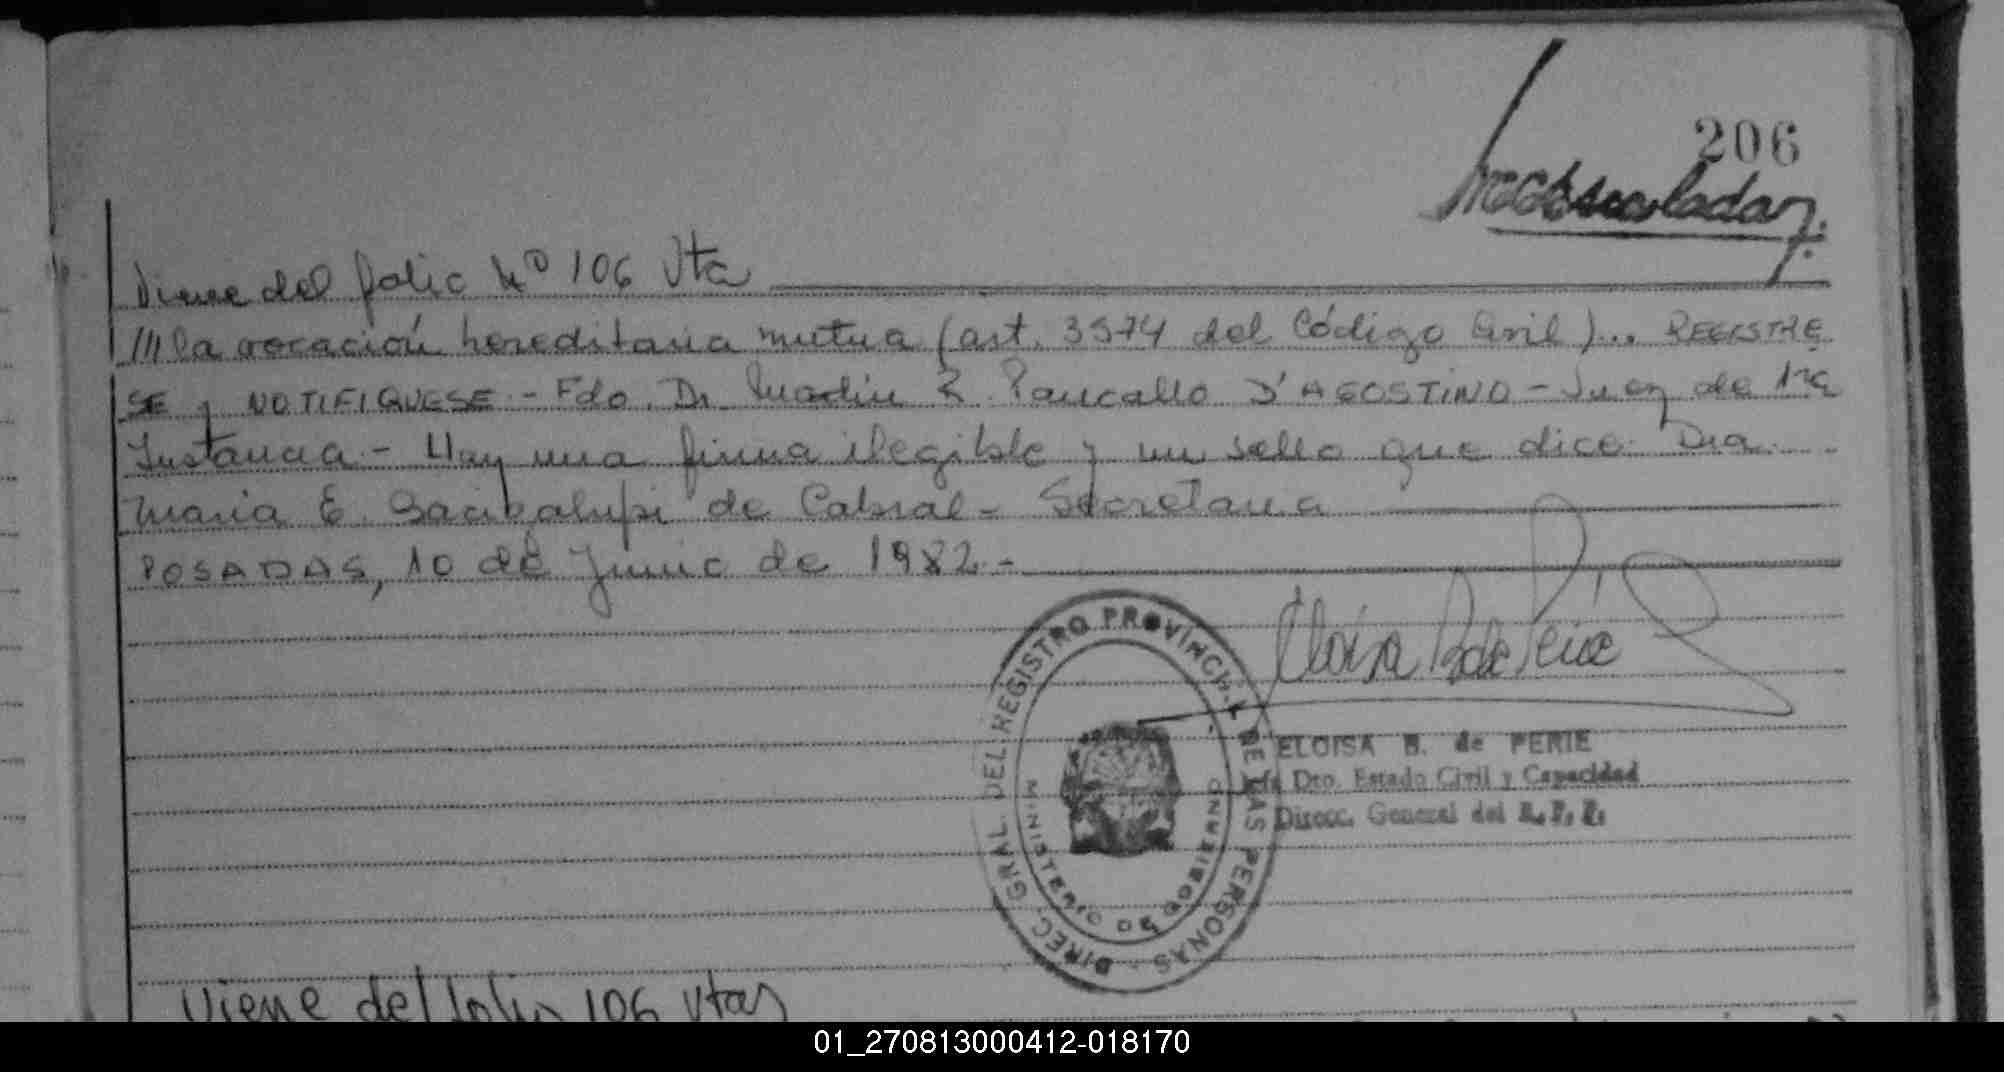 206
Viene del folio Nº 106 Vta
/// la vocación hereditaria mutua (art. 3574 del Código Civil)... REGISTRE
SE y NOTIFIQUESE - Fdo. Dr. Martín R. D'AGOSTINO - Juez de 1ra
Instancia - Hay una firma ilegible y un sello que dice: Dra.
María E. de Cabral - Secretaria
POSADAS, 10 de Junio de 1982.-
DIREC. GRAL. DEL REGISTRO PROVINCIAL DE LAS PERSONAS -
MINISTERIO DE GOBIERNO
Eloisa B de Perié
ELOISA B. de PERIE
Jefe Dto. Estado Civil y Capacidad
Direcc. General del R. P. P.
Viene del folio 106 vta
01_270813000412-018170